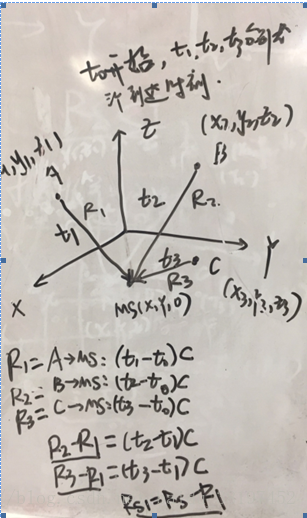 t₀开始, t₁, t₂, t₃分别为
到达时刻.
Z
(x₂, y₂, z₂)
, y₁, z₁)
A
B
R₁
t₂
R₂
t₁
t₃
C
R₃
X
Y
MS(X, Y, 0)
(X₃, Y₃, Z₃)
R₁ = A→MS: (t₁-t₀)C
R₂= B→MS: (t₂-t₀)C
R₃= C→MS: (t₃-t₀)C
R₂-R₁=(t₂-t₁)C
R₃-R₁=(t₃-t₁)C
R₅₁=R₅-R₁